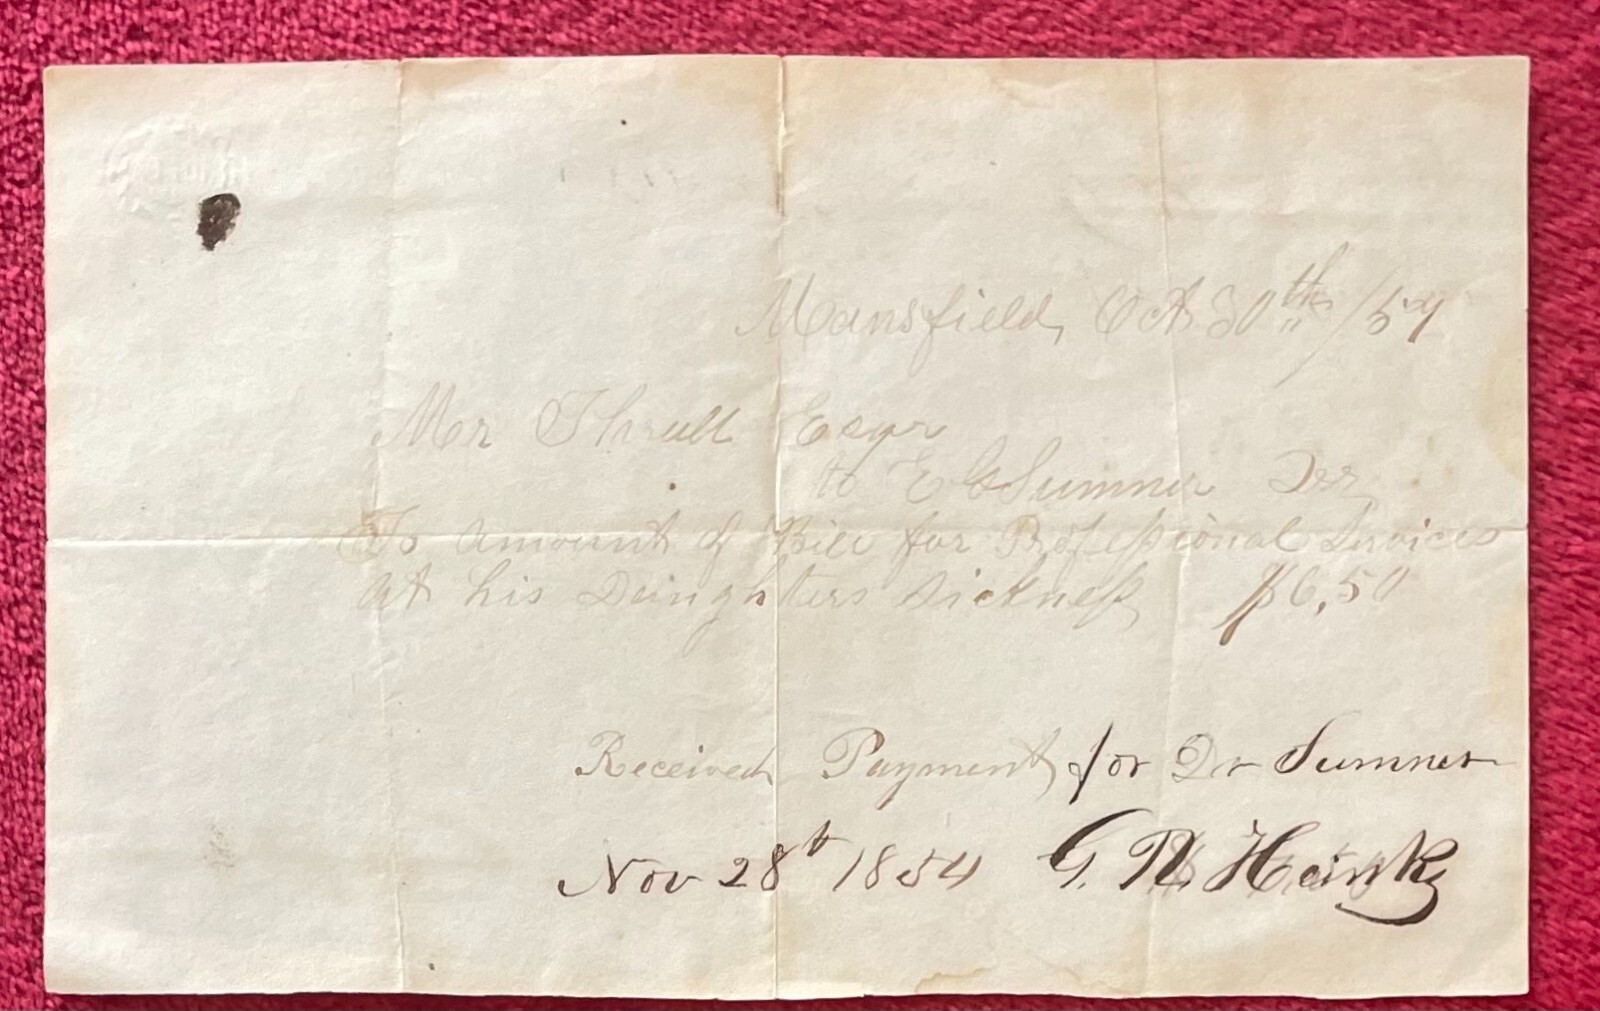 Mansfield, Oct 30th /54
Mr Thrall Esqr
to E G Sumner Dr
To Amount of Bill for Professional Services
at his Daughters sickness $6,50
Received Payment for Dr Sumner
Nov 28t 1854 G. N. Hanks